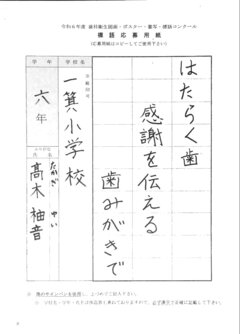 令和6年度 歯科衛生図画・ポスター・書写・標語コンクール
標語応募用紙
(応募用紙はコピーしてご使用下さい)
はたらく歯
感謝を伝える
歯みがきで
学校名
一箕小学校
学年
六年
ふりがな
氏名
たかぎ ゆい
髙木 柚音